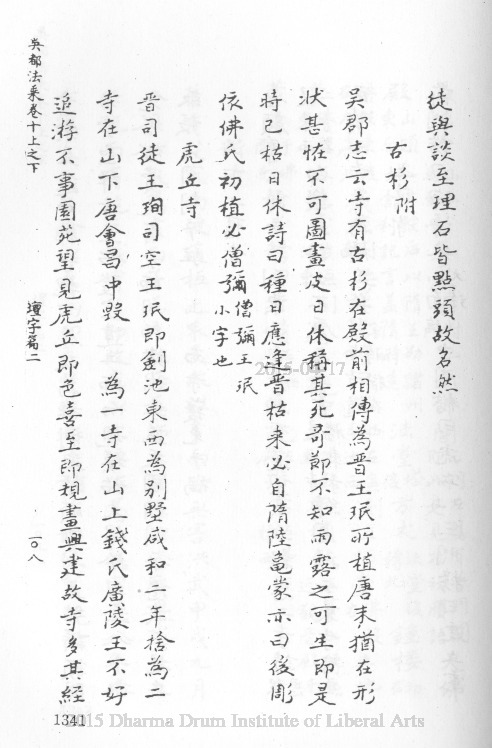 徒與談至理石皆㸃頭故名然
古杉附
吳郡志云寺有古杉在殿前相傳為晉王珉所植唐末猶在形
狀甚怪不可圖畫皮日休稱其死哥節不知雨露之可生即是
時已枯日休詩曰種日應逢晉枯來必自隋陸龜蒙亦曰後彫
依佛氏初植必僧彌僧彌王珉
小字也
虎丘寺
晉司徒王珣司空王珉即劍池東西為別墅咸和二年捨為二
寺在山下唐會昌中毀 為一寺在山上錢氏廣陵王不好
追游不事園苑望見虎丘即色喜至即規畫興建故寺多其經
吳都法乘卷十上之下
壇宇篇二
一〇八
1341
2015-04-17
2015 Dharma Drum Institute of Liberal Arts